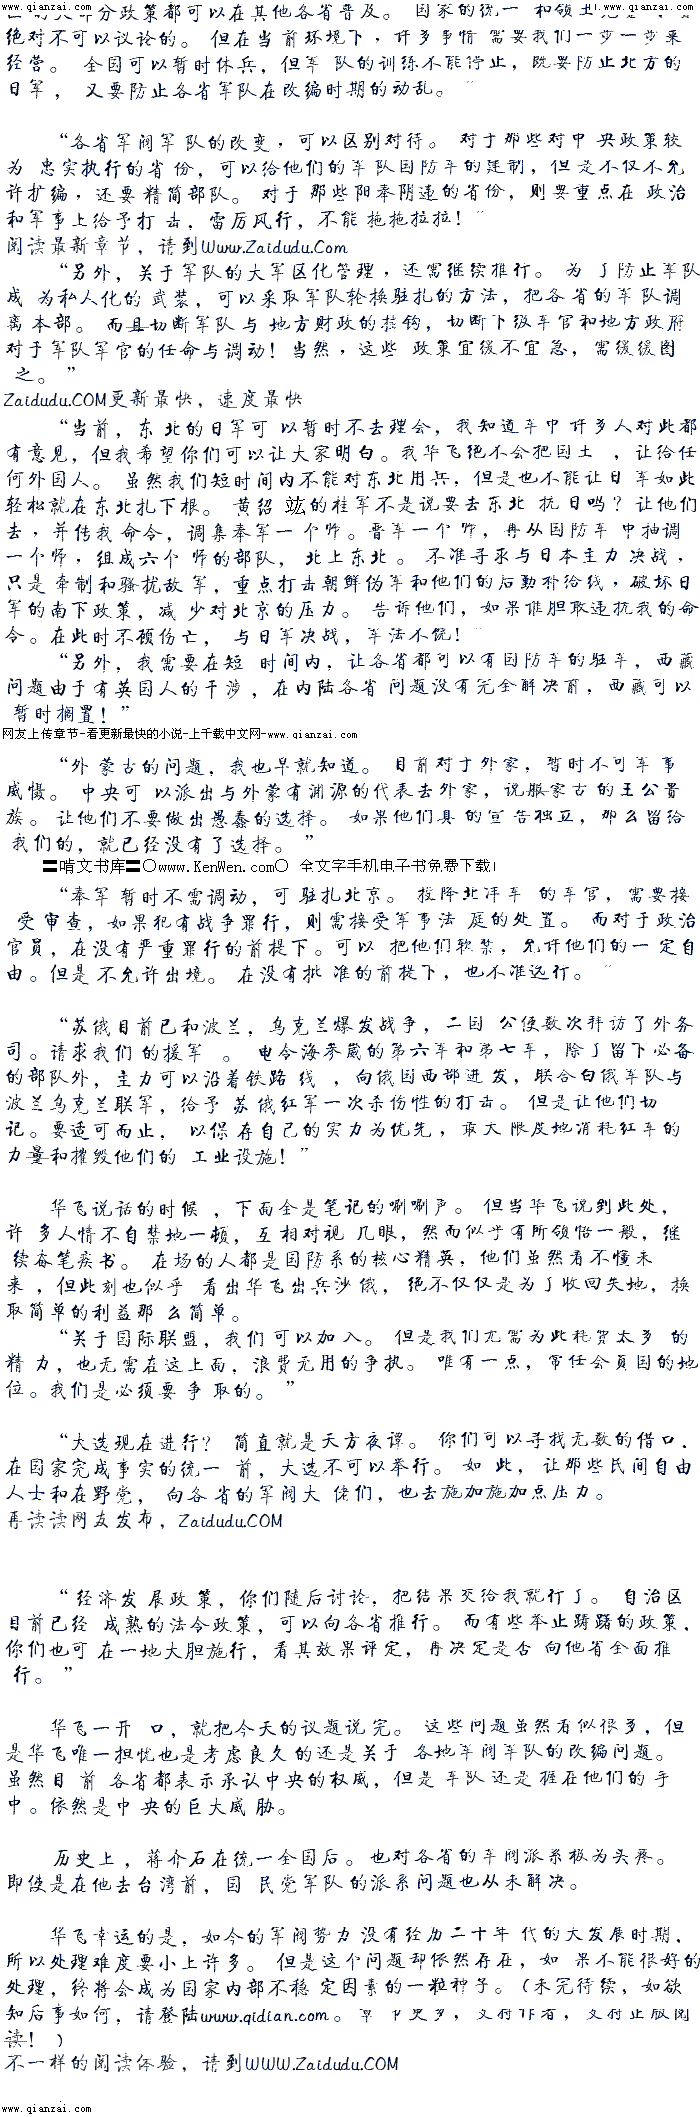 www.qianzai.com
的大部分政策都可以在其他各省普及。 国家的统一 和领土完整
绝对不可以议论的。 但在当 前环境下，许多事情 需要我们一步一步来
经营。 全国可以暂时休兵，但军 队的训练不能停止，既要防止北方的
日军， 又要防止各省军队在改编时期的动乱。”
“各省军阀军 队的改变，可以区别对待。 对于那些对中 央政策较
为 忠实执行的省 份，可以给他们的军队国防军的建制，但 是不仅不允
许扩编，还要 精简部队。 对于 那些阳奉阴违的省份，则要重点在 政治
和军事上给予打 击，雷厉风行，不能 拖拖拉拉！”
阅读最新章节，请到Www.Zaidudu.Com
“另外，关于军队的大军区化管理，还需继续推行。 为 了防止军队
成 为私人化的 武装，可以采取军队轮换驻扎的方法，把各 省的军 队调
离 本部。 而且切断军队 与 地方财政的挂钩，切断下级军官和地方政府
对于军队军官的任命与调动！当然，这些 政策宜缓不宜 急，需缓缓图
之。”
Zaidudu.COM更新最快，速度最快
“当前，东 北的日军可 以暂时不去理会，我知道军中 许多人对此都
有意见，但我希望你们可以让大家明白。我华飞绝不会把国土 ，让给任
何外国人。 虽然我们短时间内不能对东北用兵，但是也不能让日 军如此
轻松就在东北扎下根。 黄绍 竑的桂军不是说要去东北 抗 日吗？让他们
去，并传我 命令，调集奉军一个师。晋军一个 师，再从国防军 中抽调
一个师，组成六个 师的部队， 北上东北。 不准寻求与日本主力 决战，
只是 牵制和骚扰敌 军，重点打击朝鲜伪军和他们的后勤补给线，破坏日
军的南下政策，减 少对北京的压力。 告诉他们，如果谁胆敢违抗我的命
令。在此时不顾伤亡， 与日军决战，军法不饶！”
“另外，我需要在短 时间内，让各省都可以有国防军的驻军，西藏
问题由于有英国人的干涉，在内陆各省 问题没有完全解决前，西藏可以
暂时搁置！”
网友上传章节-看更新最快的小说-上千载中文网-www.qianzai.com
“外 蒙古的问题，我也早就知道。 目前对于外蒙，暂时不可军 事
威慑。 中央可 以派出与外蒙有渊源的代表去外蒙，说服蒙古的王公贵
族。让他们不要做出愚蠢的选择。 如果他们真 的宣 告独立，那么留给
我们的，就已经没有了选择。”
〓啃文书库〓〇www.KenWen.com〇 全文字手机电子书免费下载!
“奉军 暂时不需调动，可 驻扎北京。 投降北洋军 的军官，需要接
受 审查，如果犯有战争罪行，则需接受军事法 庭的处 置。 而对于政治
官员，在没有严重罪行的前提下。可以 把他们软禁，允许他们的一 定自
由。但是 不允许出境。 在没有批 准的前提下，也不准远行。”
“苏俄目前已和波兰，乌克兰爆发战争，二国 公使数次拜访了外务
司。请求我们 的援军 。 电令海参崴的第六军和第七军，除了留下必备
的部队外，主力可以沿着铁路 线 ，向俄国西部进 发，联合白俄军队与
波兰乌克兰联军，给予 苏俄红军一次杀伤性的打击。 但是让他们切
记。要适可而止， 以保 存自己的实力为优先，最大 限度地消耗红军的
力量和摧毁他们的 工业设施！”
华飞说话的时候 ，下面全是笔记的唰唰声。 但当华飞说到此处，
许 多人情不自禁地一顿，互 相对视 几眼，然而似乎有所领悟一般，继
续奋笔疾书。 在场的人都是国防系的核心精英，他们虽然看不懂未
来 ，但此刻也似乎 看出华飞出兵沙 俄， 绝不仅仅是为了收回失地，换
取简单的利益那 么简单。
“关于国际联盟，我们 可以加 入。 但是我们无需为此耗费太多 的
精 力，也无需在这上面，浪费无用的争执。 唯有一点，常任会员国的地
位。我们是必须要 争 取的。”
“大选现在进行？ 简直就是天方夜谭。 你们可以寻找无数的借口，
在国家完成事实的统一 前，大选不可以举行。 如 此，让那些民间自由
人士和在野党， 向各省的军阀大 佬们，也去施加施加点压力。
再读读网友发布，Zaidudu.COM
“ 经济发 展政 策，你们随后讨论，把结果 交给我就行了。 自治区
目前已经 成熟的法令政策，可以向各省推行。 而有些举止踌躇的政策，
你们也可 在一地大胆施行，看其效果评定，再决定是否 向他省全面推
行。”
华飞一开 口，就把今天的议题说完。 这些问题虽然看似很多，但
是华飞唯一担忧也是考虑良久的还是关于 各地军阀军队的改编问题。
虽然目 前 各省都表示承认中央的权威，但是 军队还是 握在他们的 手
中。依然是中 央的巨大威 胁。
历史上，蒋介石在统一全国后。也对各省的军阀派系极为头疼。
即使是在他去台湾前，国 民党军队 的派系问题也从未解决。
华飞幸运的是，如今的军阀势力 没有经历二十年 代的大发展时期，
所以处理难度要小上许多。 但是这个问题却依然存在，如 果不能很好的
处理，终将会成为国家内部不稳 定因素的一粒种子。（未完待续，如欲
知后事如何，请登陆www.qidian.com。章 节更多，支持作者，支持正版阅
读！）
不一样的阅读体验，请到WWW.Zaidudu.COM
www.qianzai.com